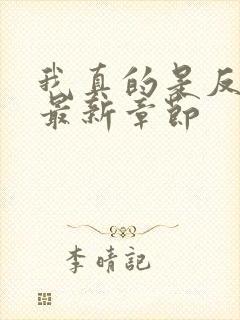 我真的是反
最新章节
李晴記